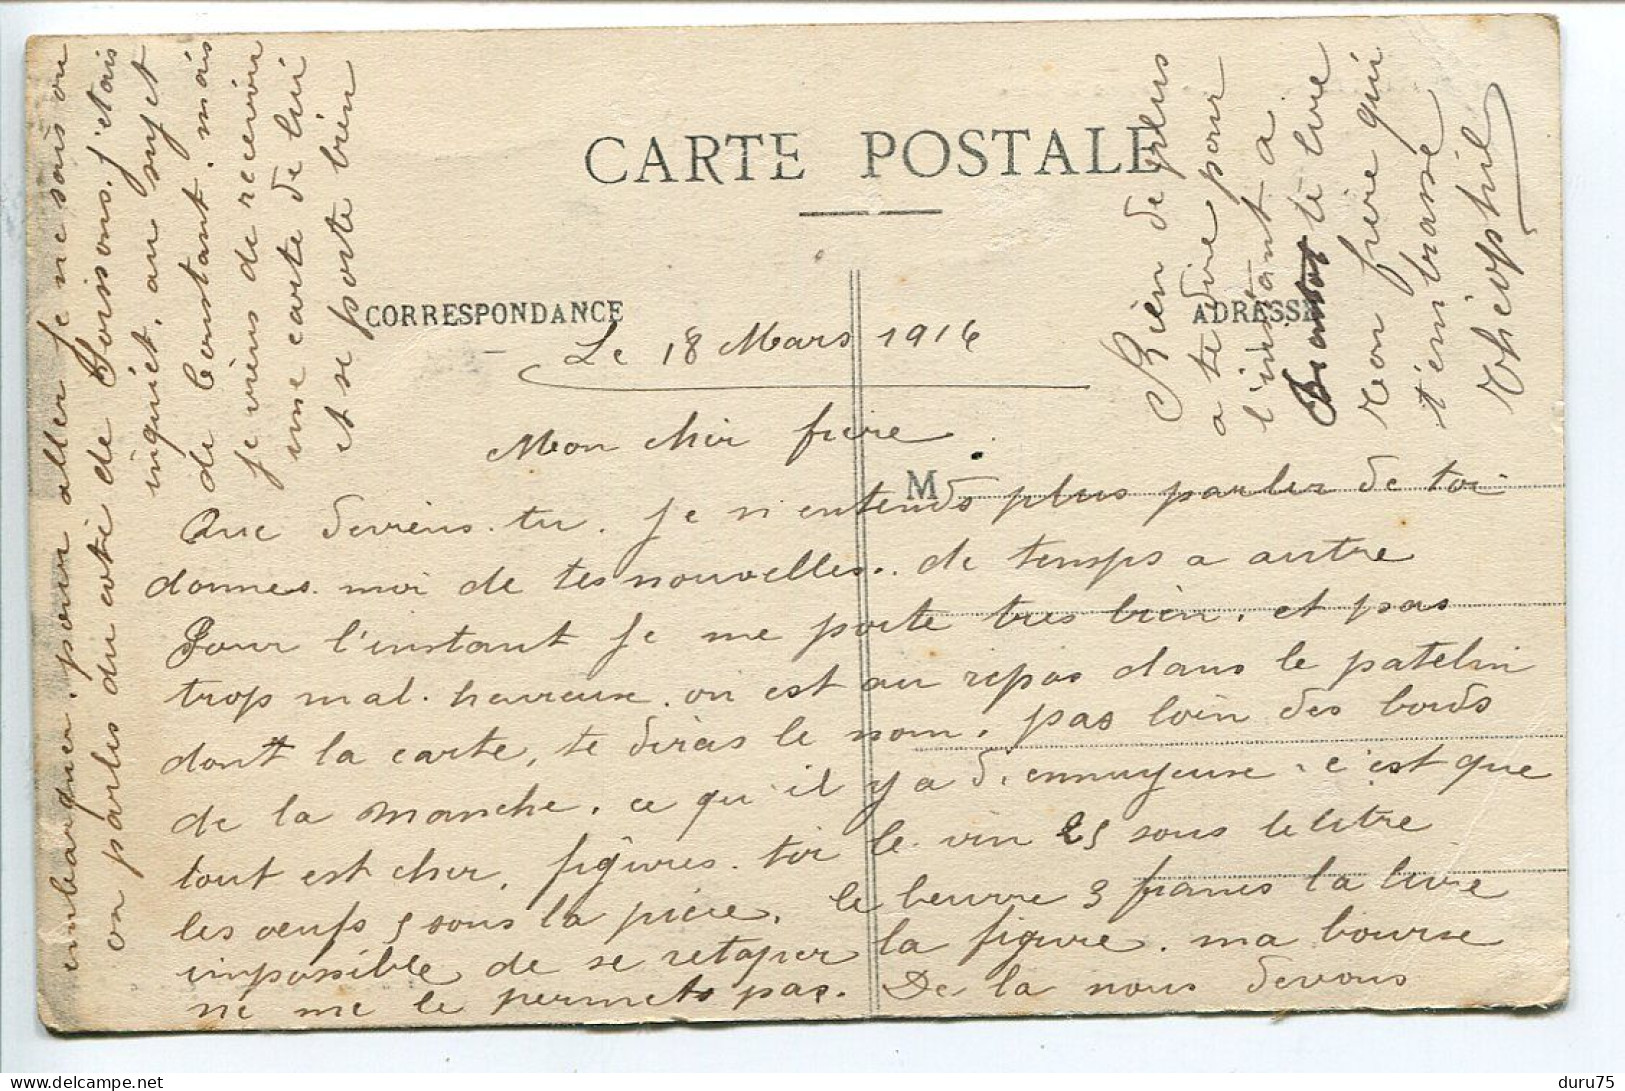 CARTE POSTALE
CORRESPONDANCE
ADRESSE
M
Le 18 Mars 1916
Mon cher frere.
Que deviens.tu. Je n'entends plus parler de toi
donnes.moi de tes nouvelles.. de temps a autre
Pour l'instant je me porte tres bien. et pas
trop mal.heureux. on est au repos dans le patelin
dont la carte, te diras le nom. pas loin des bords
de la manche. ce qu'il y a d'ennuyeuse. c'est que
tout est cher. figures.toi le vin 25 sous le litre
les oeufs 5 sous la pièce. le beurre 3 francs la livre
impossible de se retaper la figure. ma bourse
ne me le permets pas. De la nous devons
embarquer. pour aller je ne sais ou
on parles du coté de Soissons. j'etais
inquiet. au sujet
de Constant. mais
je viens de recevoir
une carte de lui
et se porte bien
Rien de plus
a te dire pour
l'instant a
te livre
Ton frere qui
t'embrasse
Théophil
duru75